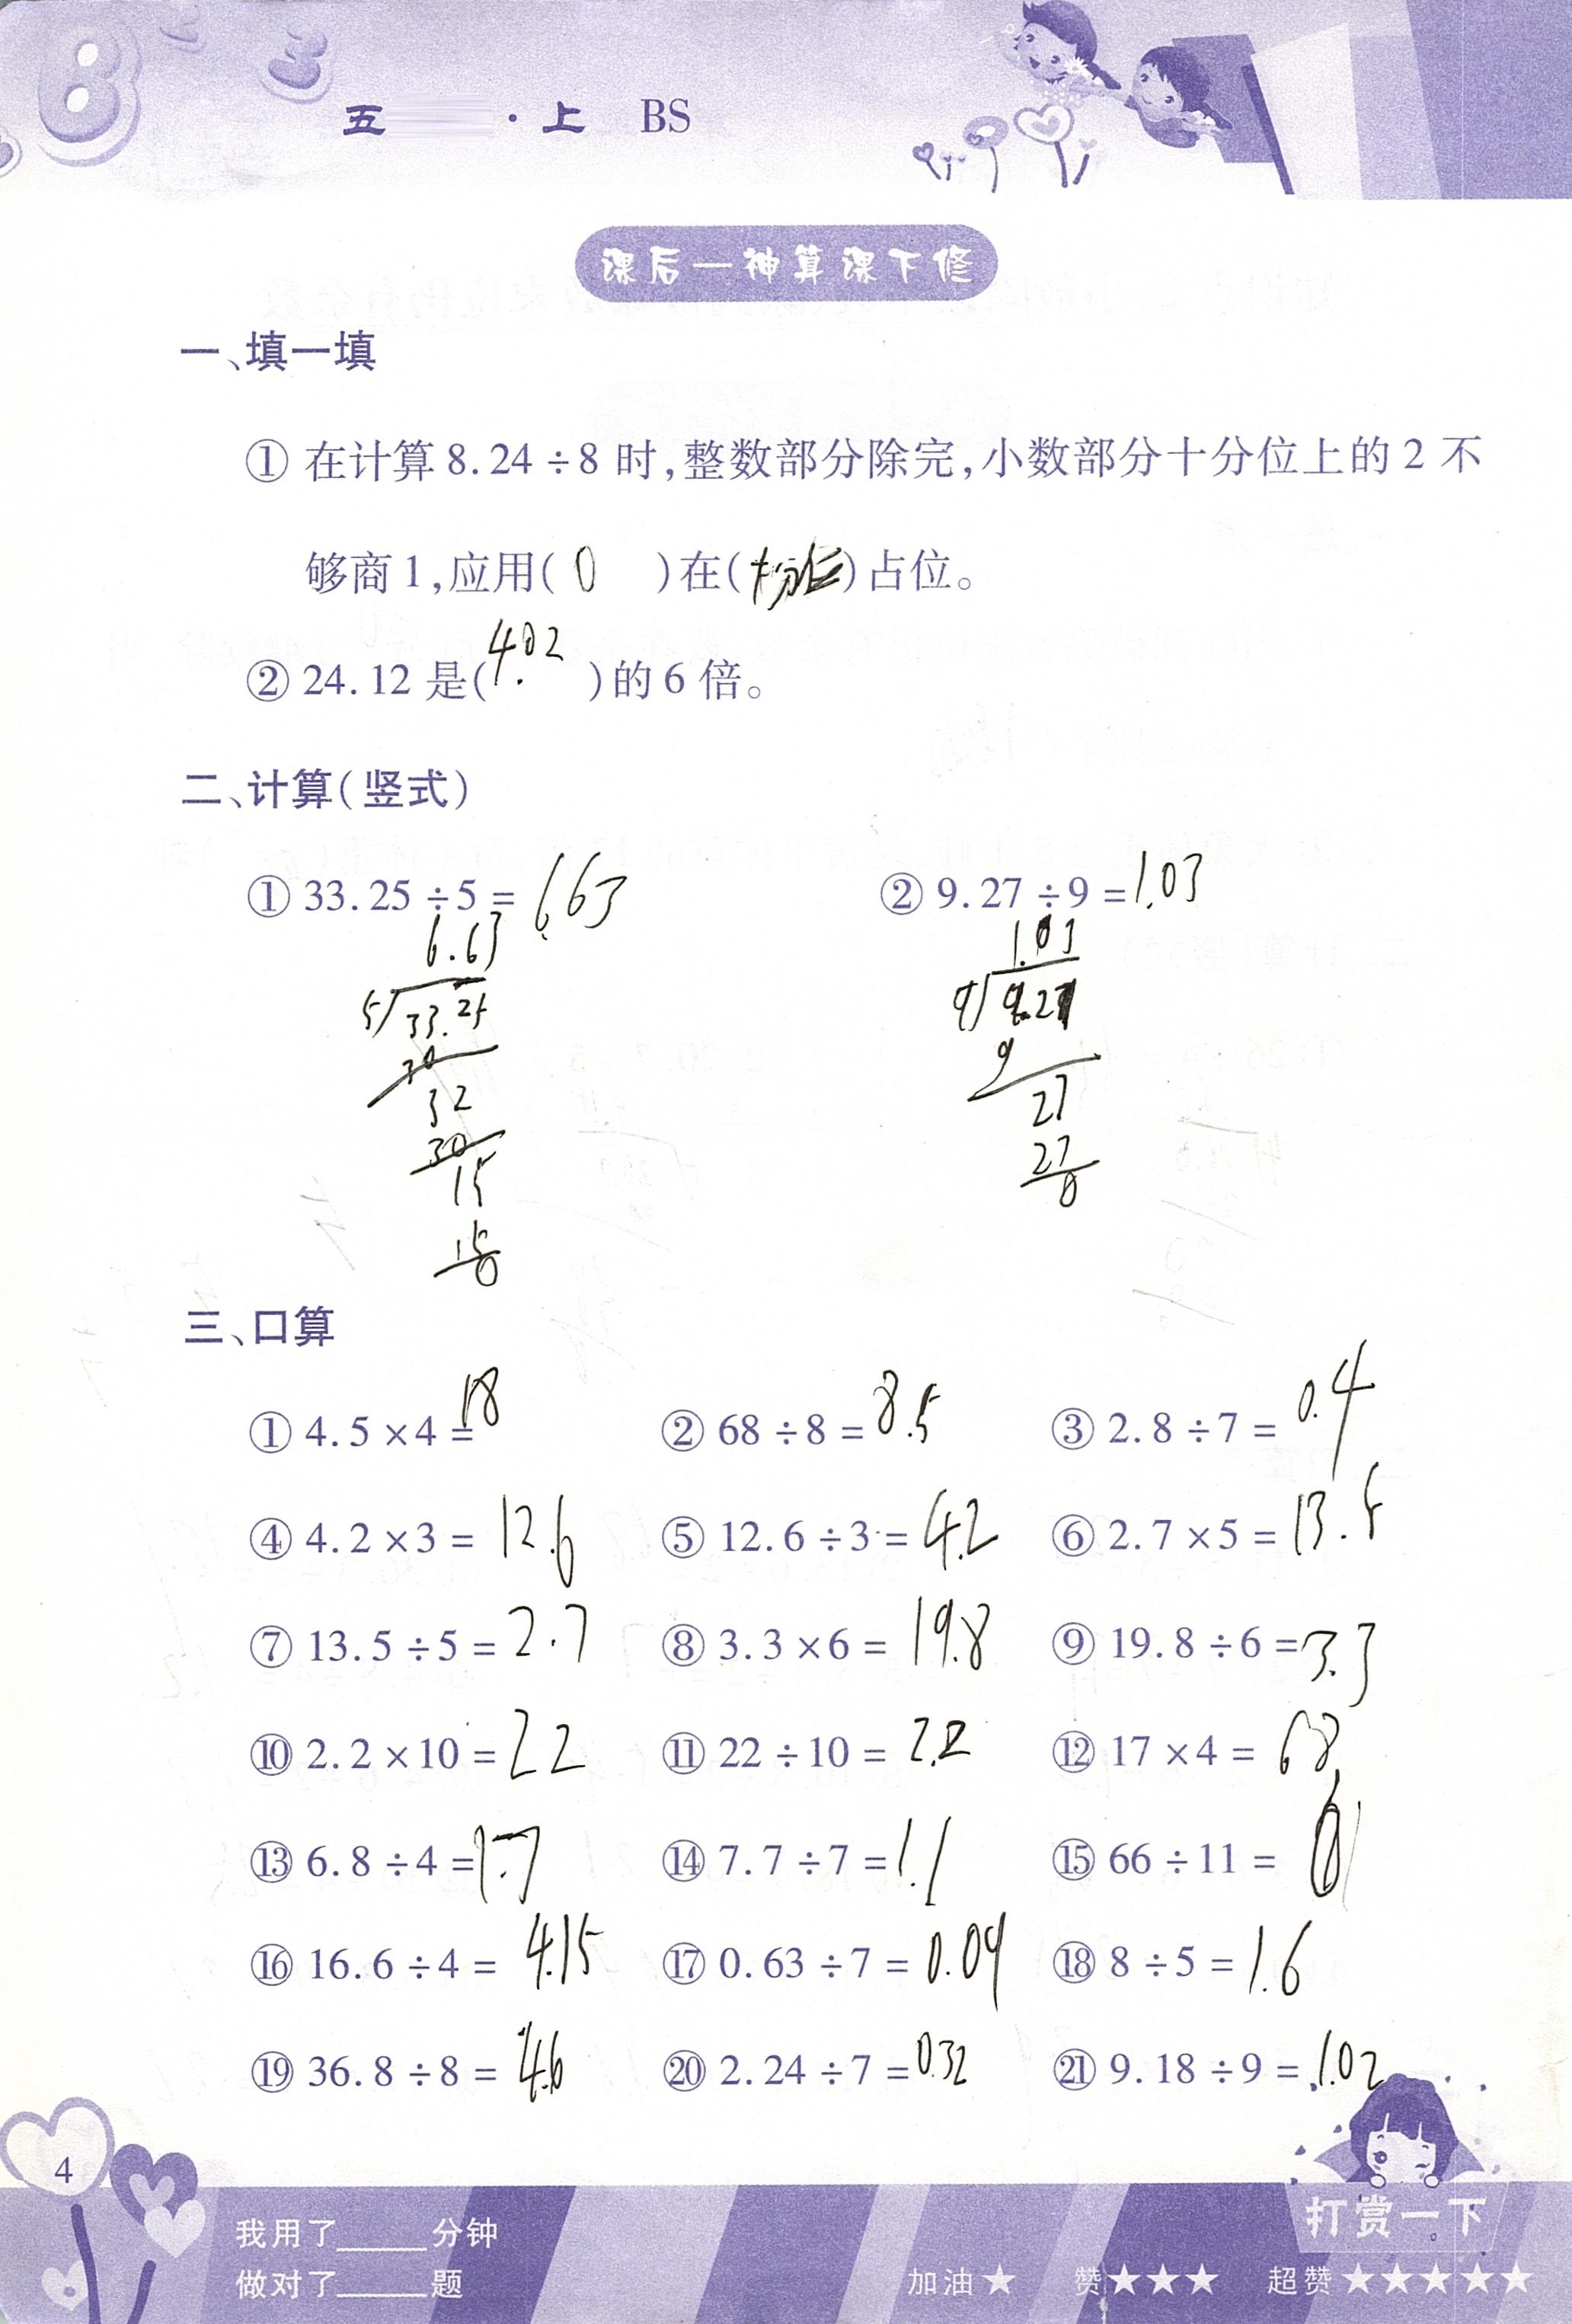 五 · 上 BS
课后—神算课下修
一、填一填
① 在计算 8.24 ÷ 8 时,整数部分除完,小数部分十分位上的 2 不
够商 1,应用( 0 )在(十分位)占位。
② 24.12 是( 4.02 )的 6 倍。
二、计算(竖式)
① 33.25 ÷ 5 = 6.63 ② 9.27 ÷ 9 = 1.03
6.63 1.03
5 33.25 9 9.27
30 9
32 27
30 27
15 0
15
0
三、口算
① 4.5 × 4 = 18 ② 68 ÷ 8 = 8.5 ③ 2.8 ÷ 7 = 0.4
④ 4.2 × 3 = 12.6 ⑤ 12.6 ÷ 3 = 4.2 ⑥ 2.7 × 5 = 13.5
⑦ 13.5 ÷ 5 = 2.7 ⑧ 3.3 × 6 = 19.8 ⑨ 19.8 ÷ 6 = 3.3
⑩ 2.2 × 10 = 22 ⑪ 22 ÷ 10 = 2.2 ⑫ 17 × 4 = 68
⑬ 6.8 ÷ 4 = 1.7 ⑭ 7.7 ÷ 7 = 1.1 ⑮ 66 ÷ 11 =
⑯ 16.6 ÷ 4 = 4.15 ⑰ 0.63 ÷ 7 = 0.09 ⑱ 8 ÷ 5 = 1.6
⑲ 36.8 ÷ 8 = 4.6 ⑳ 2.24 ÷ 7 = 0.32 ㉑ 9.18 ÷ 9 = 1.02
4
我用了____分钟
做对了____题
打赏一下
加油★ 赞★★★ 超赞★★★★★